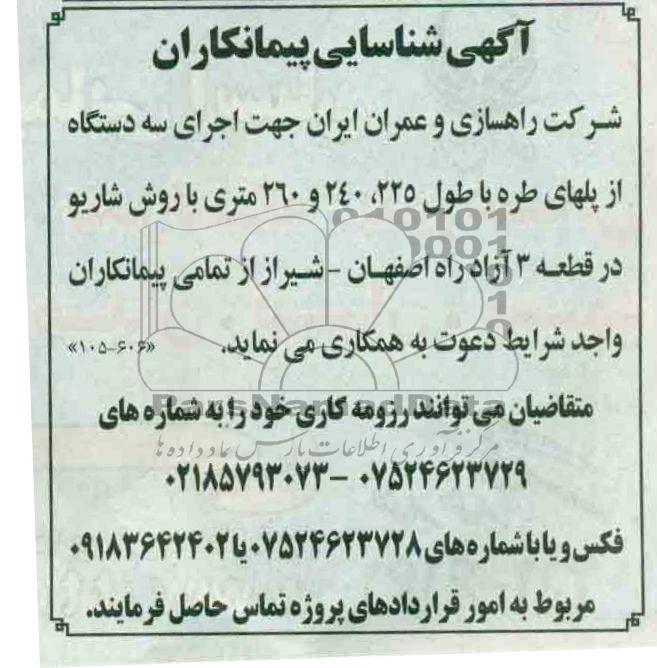 آگهی شناسایی پیمانکاران
شرکت راهسازی و عمران ایران جهت اجرای سه دستگاه
از پلهای طره با طول ۲۲۵، ۲٤۰ و ۲٦۰ متری با روش شاریو
در قطعه ۳ آزاد راه اصفهان - شیراز از تمامی پیمانکاران
واجد شرایط دعوت به همکاری می نماید. «۱۰۵-۶۰۶»
متقاضیان می توانند رزومه کاری خود را به شماره های
۰۷۵۲۴۶۲۳۷۲۹ – ۰۲۱۸۵۷۹۳۰۷۳
فکس و یا با شماره های ۰۷۵۲۴۶۲۳۷۲۸ یا ۰۹۱۸۳۶۴۲۴۰۲
مربوط به امور قراردادهای پروژه تماس حاصل فرمایند.
ParsNamadData
مرکز فرآوری اطلاعات پارس نماد داده ها